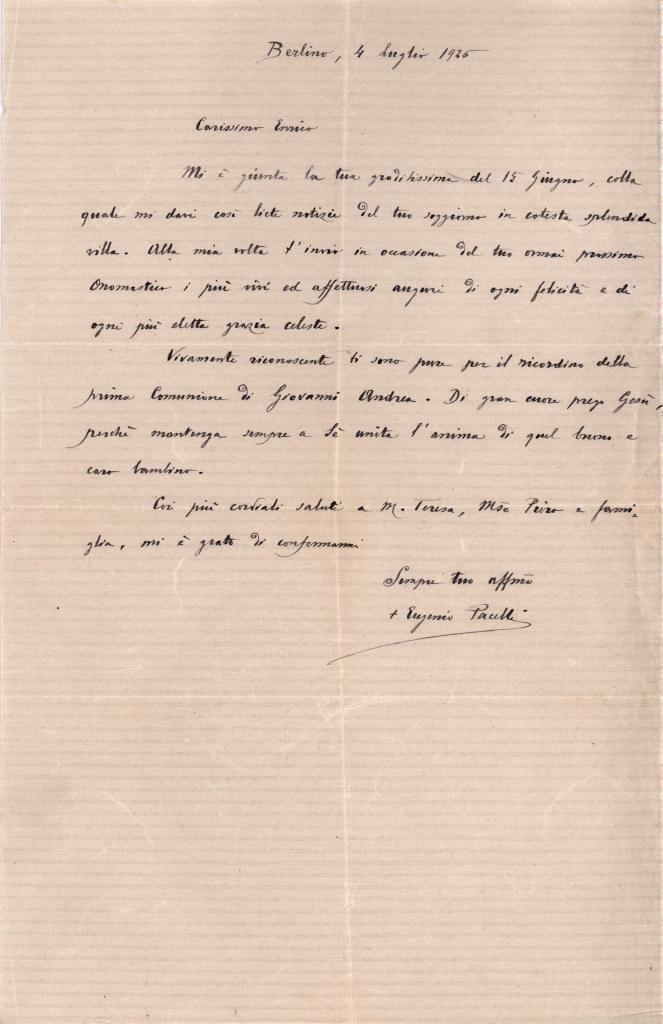 Berlino, 4 Luglio 1926
Carissimo Enrico
Mi è giunta la tua graditissima del 15 Giugno, colla
quale mi davi così liete notizie del tuo soggiorno in cotesta splendida
villa. Alla mia volta t'invio in occasione del tuo ormai prossimo
Onomastico i più vivi ed affettuosi auguri di ogni felicità e di
ogni più eletta grazia celeste.
Vivamente riconoscente ti sono pure per il ricordino della
prima Comunione di Giovanni Andrea. Di gran cuore prego Gesù,
perchè mantenga sempre a Sè unita l'anima di quel buono e
caro bambino.
Coi più cordiali saluti a M. Teresa, Piero e fami-
glia, mi è grato di confermarmi
Sempre tuo affmo
+ Eugenio Pacelli